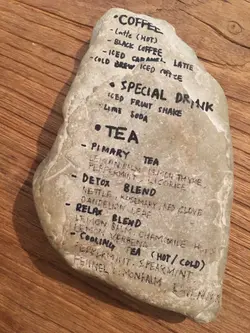 • COFFEE
- Latte (HOT)
- BLACK COFFEE
- ICED CARAMEL LATTE
- COLD BREW ICED
• SPECIAL DRINK
ICED FRUIT SHAKE
LIME SODA
• TEA
- PIMARY TEA
LEMON THYME
PEPPERMINT LICORICE
- DETOX BLEND
NETTLE, ROSEMARY, RED CLOVE
DANDELION LEAF
- RELAX BLEND
LEMON BALM CHAMOMILE
LEMON VERBENA
- COOLING TEA (HOT/COLD)
PEPPERMINT, SPEARMINT
FENNEL